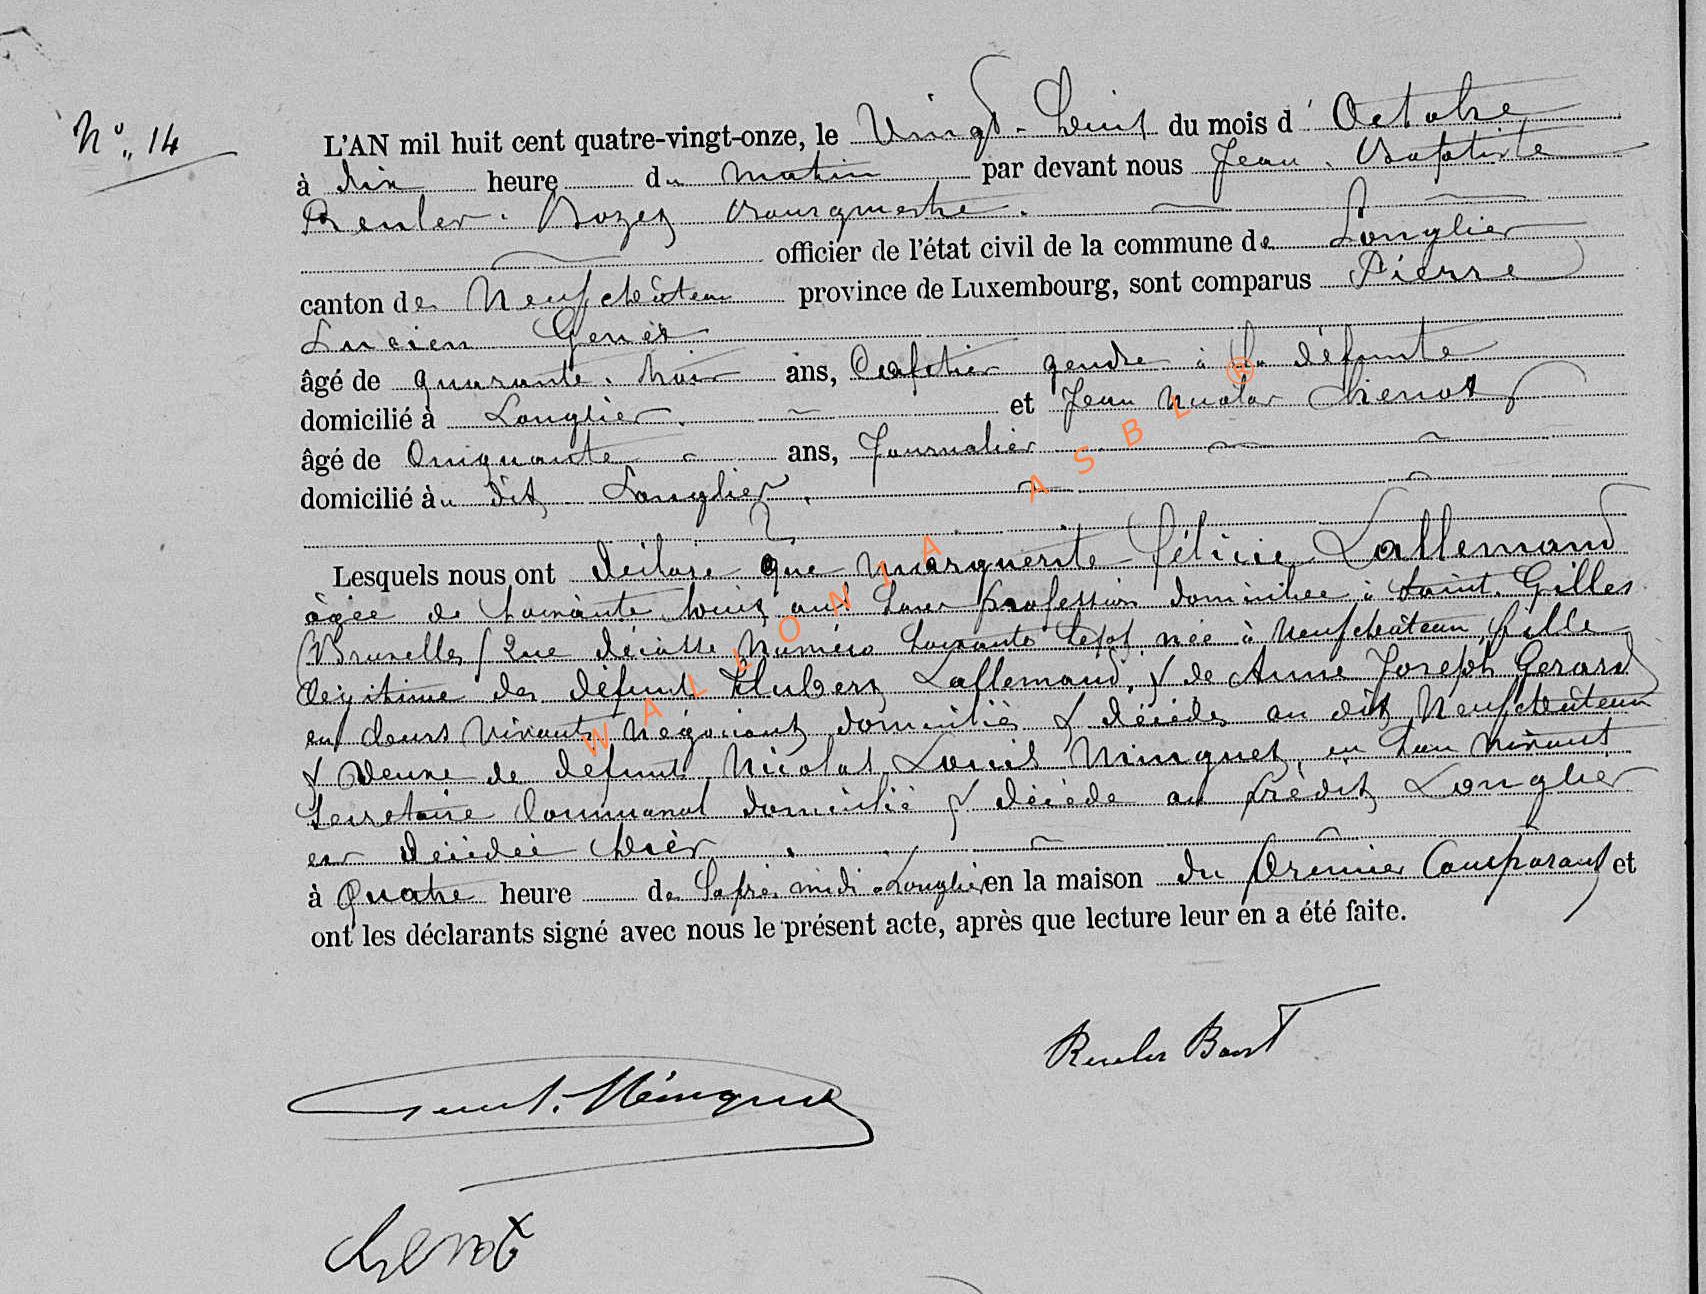 N° 14
L'AN mil huit cent quatre-vingt-onze, le Vingt-huit du mois d'Octobre
à dix heure du matin par devant nous Jean-Baptiste
Renler-Bozez Bourgmestre.
officier de l'état civil de la commune de Longlier
canton de Neufchâteau province de Luxembourg, sont comparus Pierre
Lucien
âgé de quarante-trois ans, Cafetier gendre à la défunte
domicilié à Longlier. et Jean Nicolas Chenot
âgé de Cinquante ans, Journalier
domicilié au dit Longlier.
Lesquels nous ont déclaré que Marguerite Félicie Lallemand
âgée de ans sans profession domiciliée à Saint-Gilles
(Bruxelles) Rue Numéro sept née à Neufchâteau, fille
légitime de défunt Hubert Lallemand, & de Anne Joseph Gerard
en leurs vivants négociants domiciliés & décédés au dit Neufchâteau
& veuve de défunt Nicolas Louis Minguet, en son vivant
Secretaire Communal domicilié & décédé au prédit Longlier
est décédée hier
à Quatre heure de l'après midi à Longlier en la maison du Premier Comparant et
ont les déclarants signé avec nous le présent acte, après que lecture leur en a été faite.
Renler
Minguet
Chenot
WALLONIA ASBL ®